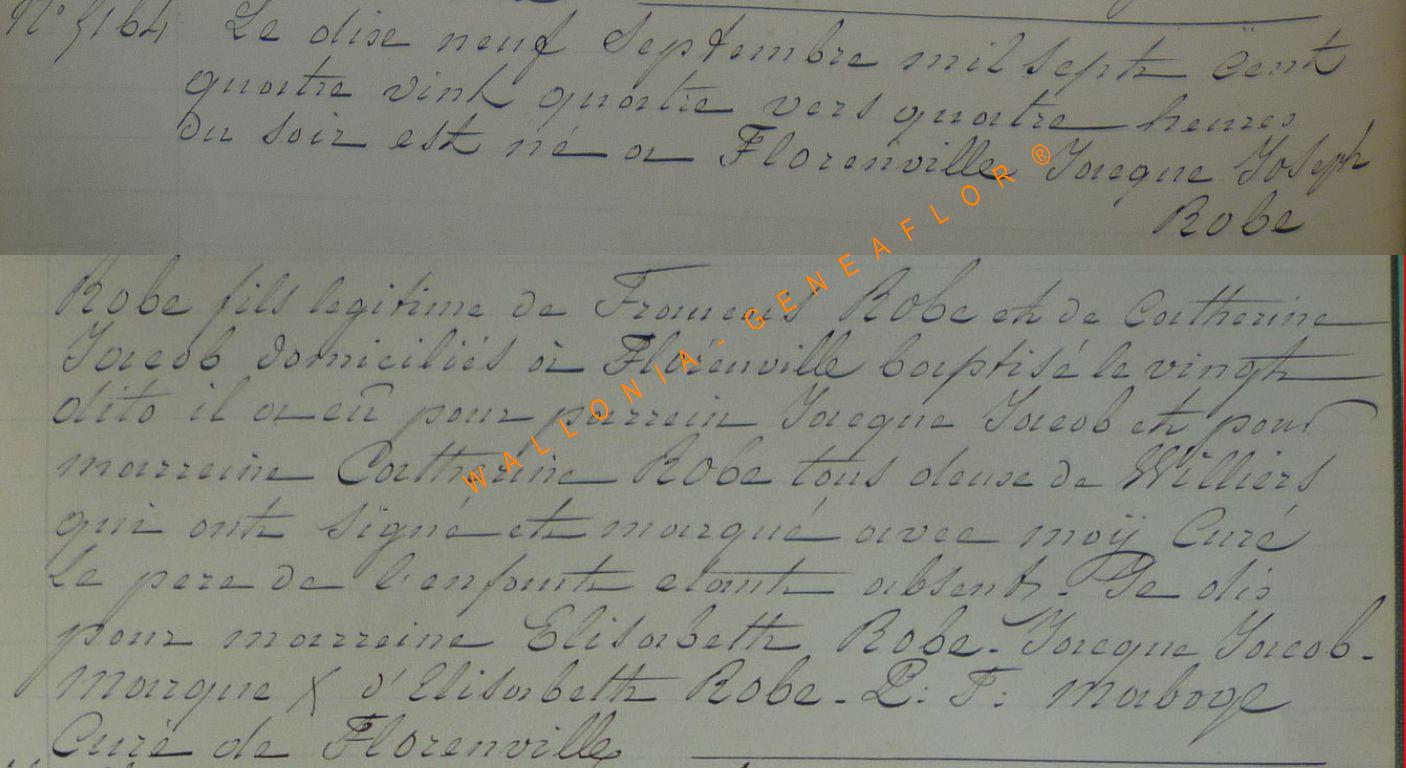 N° 5164 Le dix neuf Septembre mil Septz Cent
quatre vint quatre vers quatre heures
du soir est né a Florenville Jacque Joseph
Robe
Robe fils legitime de Francois Robe et de Catherine
Jacob domiciliés à Florenville baptisé le vingt
dito il a eû pour parrein Jacque Jacob et pour
marreine Catherine Robe tous deux de Williers
qui ont signé et marqué avec moÿ Curé
Le pere de l'enfant etant absent. Je dis
pour marreine Elisabeth Robe. Jacque Jacob.
marque X d'Elisabeth Robe. P: F: Maboge
Curé de Florenville
WALLONIA - GENEAFLOR ®